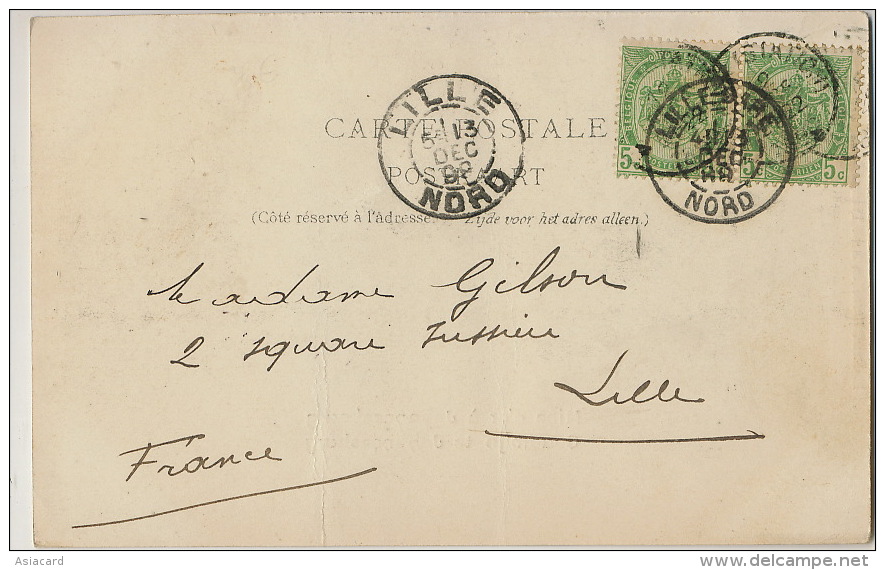 CARTE POSTALE
POSTKAART
(Côté réservé à l'adresse. — Zijde voor het adres alleen.)
LILLE
13
DEC
NORD
LILLE
13
DEC
NORD
BELGIQUE
5c
5c 5c
Madame Gilson
2 square Jussieu
Lille
France
Asiacard
www.delcampe.net